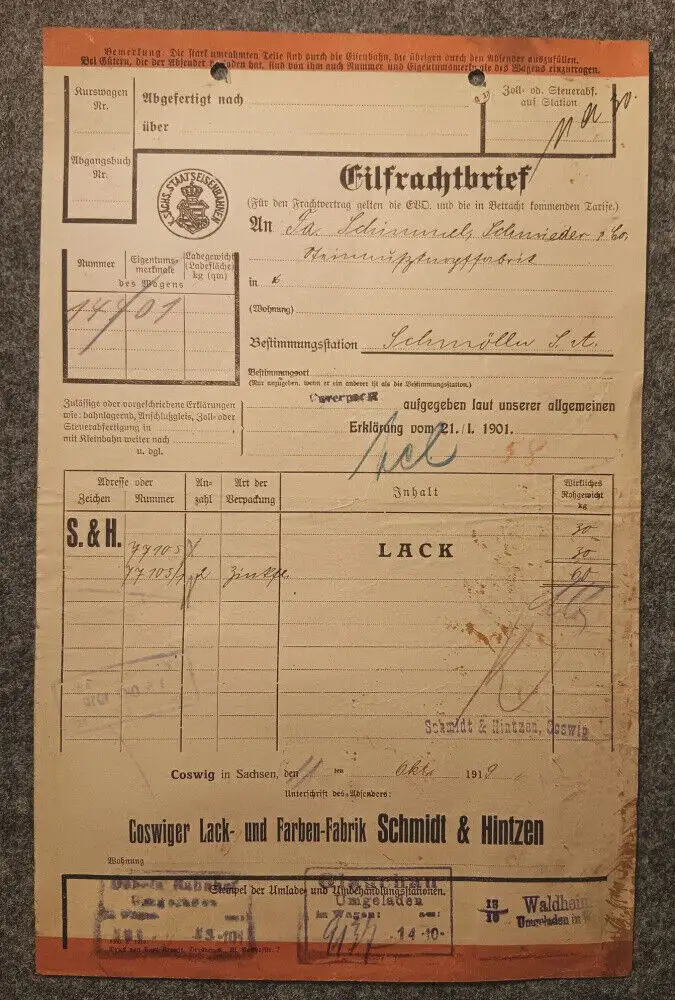 Bemerkung: Die stark umrahmten Teile sind durch die Eisenbahn, die übrigen durch den Absender auszufüllen.
Bei Gütern, die der Absender verladen hat, sind von ihm auch Nummer und Eigentumsmerkmale des Wagens einzutragen.
Kurswagen
Nr.
Abgefertigt nach
über
Zoll- od. Steuerabf.
auf Station
Abgangsbuch
Nr.
K. SÄCHS. STAATSEISENBAHNEN
Eilfrachtbrief
(Für den Frachtvertrag gelten die EVO. und die in Betracht kommenden Tarife.)
An Fa. Schimmel, Schnieder & Co,
Steinnußknopffabrik
Nummer
Eigentums-
merkmale
Ladegewicht
(Ladefläche)
kg (qm)
des Wagens
in
(Wohnung)
Bestimmungsstation Schmölln S. A.
Bestimmungsort
(Nur anzugeben, wenn er ein anderer ist als die Bestimmungsstation.)
Zulässige oder vorgeschriebene Erklärungen
wie: bahnlagernd, Anschlußgleis, Zoll- oder
Steuerabfertigung in
mit Kleinbahn weiter nach
u. dgl.
Unverpackt aufgegeben laut unserer allgemeinen
Erklärung vom 21./I. 1901.
Adresse oder
Zeichen Nummer
An-
zahl
Art der
Verpackung
Inhalt
Wirkliches
Rohgewicht
kg
S. & H.
77105
LACK
30
30
77105/1 2 Zinkfl.
60
Schmidt & Hintzen, Coswig
Coswig in Sachsen, den 11 ten Okt. 1919
Unterschrift des Absenders:
Coswiger Lack- und Farben-Fabrik Schmidt & Hintzen
Wohnung
Stempel der Umlade- und Umbehandlungsstationen.
Döbeln Bahnhof
Umgeladen
im Wagen:
Glauchau
Umgeladen
im Wagen: am:
14-10-
Waldheim
Umgeladen in W